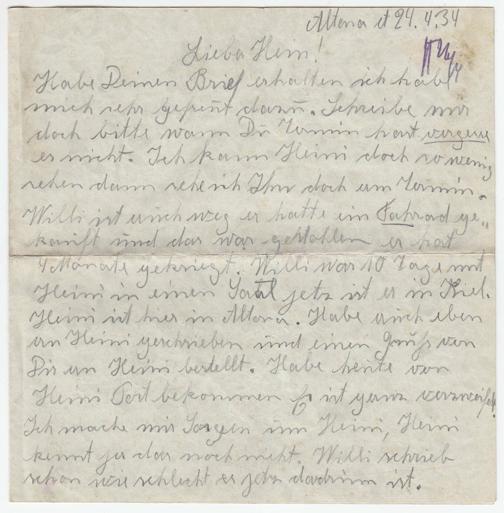 Altona d 24.4.34
Lieber Hein!
Habe Deinen Brief erhalten ich habe
mich sehr gefreut dazu. Schreibe mir
doch bitte wann Du Termin hast vergess
es nicht. Ich kann Heini doch so wenig
sehen dann sehe ich Ihn doch am Termin.
Willi ist auch weg er hatte ein Fahrad ge„
kauft und das war gestohlen er hat
4 Monate gekriegt. Willi war 10 Tage mit
Heini in einen Saal jetz ist er in Kiel.
Heini ist hier in Altona. Habe auch eben
an Heini geschrieben und einen Gruß von
Dir an Heini bestellt. Habe heute von
Heini Post bekommen Er ist ganz verzweifelt.
Ich mache mir Sorgen um Heini, Heini
kennt ja das noch nicht. Willi schrieb
schon wie schlecht es jetz dadrinn ist.